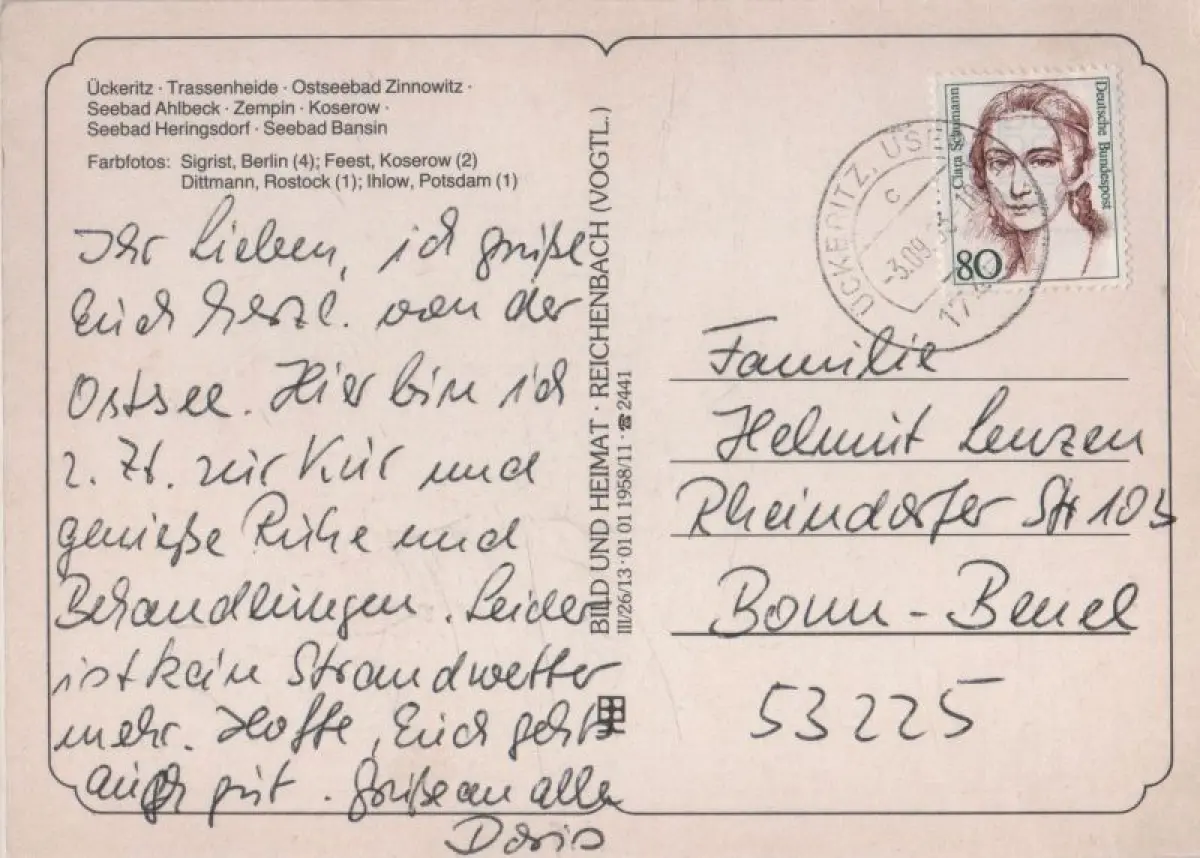 Ückeritz · Trassenheide · Ostseebad Zinnowitz ·
Seebad Ahlbeck · Zempin · Koserow ·
Seebad Heringsdorf · Seebad Bansin
Farbfotos: Sigrist, Berlin (4); Feest, Koserow (2)
Dittmann, Rostock (1); Ihlow, Potsdam (1)
Ihr Lieben, ich grüße
Euch herzl. von der
Ostsee. Hier bin ich
z. Zt. zur Kur und
genieße Ruhe und
Behandlungen. Leider
ist kein Strandwetter
mehr. Hoffe, Euch geht's
auch gut. Grüße an alle
Doris
BILD UND HEIMAT · REICHENBACH (VOGTL.)
III/26/13 · 01 01 1958/11 · ☎ 2441
Clara Schumann
Deutsche Bundespost
80
ÜCKERITZ, USE
c
-3.09
Familie
Helmut Lenzen
Rheindorfer Str 103
Bonn-Beuel
53225